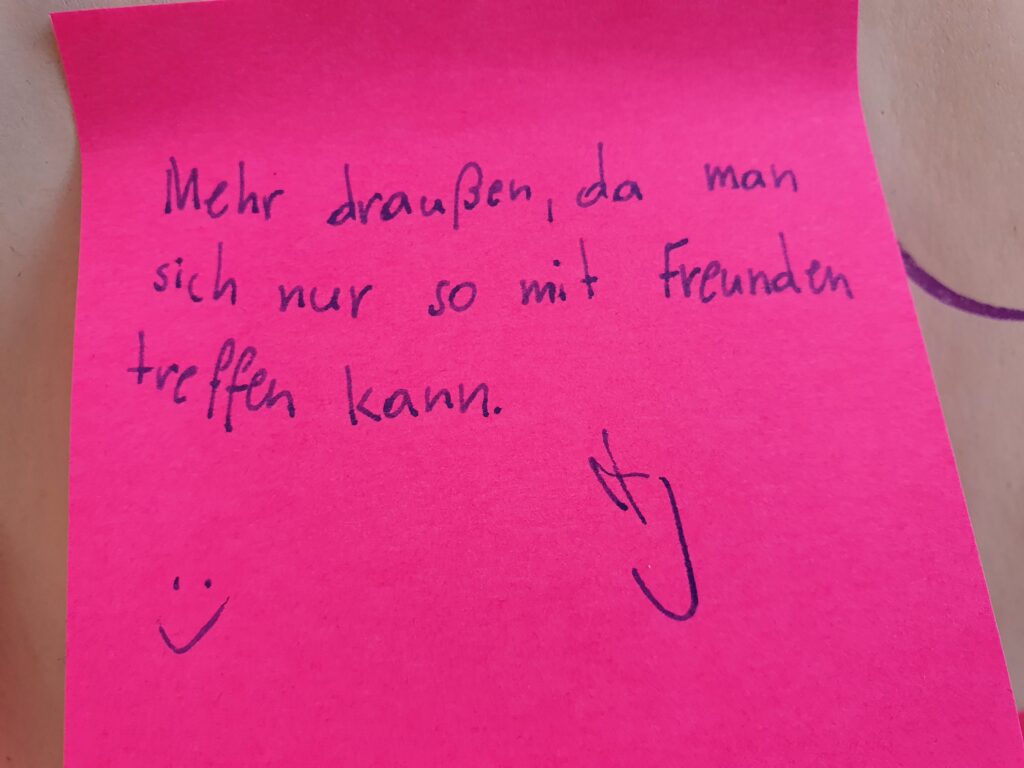 Mehr draußen, da man
sich nur so mit Freunden
treffen kann.